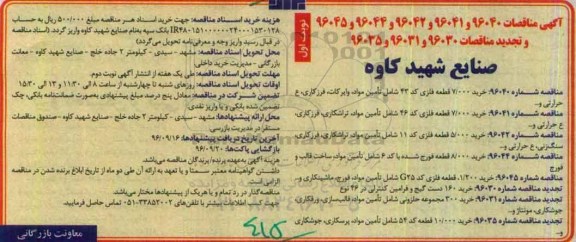 آگهی مناقصات ۹۶۰۴۰ و ۹۶۰۴۱ و ۹۶۰۴۲ و ۹۶۰۴۴ و ۹۶۰۴۵
و تجدید مناقصات ۹۶۰۳۰ و ۹۶۰۳۱ و ۹۶۰۳۵
نوبت اول
صنایع شهید کاوه
مناقصه شماره ۹۶۰۴۰: خرید ۷/۰۰۰ قطعه فلزی کد ۴۳ شامل تأمین مواد، وایرکات، فرزکاری، ع
حرارتی و...
مناقصه شماره ۹۶۰۴۱: خرید ۷/۰۰۰ قطعه فلزی کد ۴۶ شامل تأمین مواد، تراشکاری، فرزکاری،
ع حرارتی و...
مناقصه شماره ۹۶۰۴۲: خرید ۵/۰۰۰ قطعه فلزی کد ۱۱ شامل تأمین مواد، تراشکاری، فرزکاری،
سنگ‌زنی، ع حرارتی و...
مناقصه شماره ۹۶۰۴۴: خرید ۸/۰۰۰ قطعه فورج شده با کد ۶ شامل تأمین مواد، ساخت قالب و
فورج
مناقصه شماره ۹۶۰۴۵: خرید ۱/۲۰۰ قطعه فلزی کد G۲۵ شامل تأمین مواد، فورج، ماشینکاری و...
تجدید مناقصه شماره ۹۶۰۳۰: خرید ۱۶۰ دست گیج و فرامین کنترلی در ۴۶ نوع
تجدید مناقصه شماره ۹۶۰۳۱: خرید ۳۰۰ مجموعه حلزونی شامل تأمین مواد، قالب‌سازی، ورقکاری،
جوشکاری، مونتاژ و...
تجدید مناقصه شماره ۹۶۰۳۵: خرید ۱۰/۰۰۰ قطعه کد ۵۴ شامل تأمین مواد، پرسکاری، جوشکاری
و...
هزینه خرید اسناد مناقصه: جهت خرید اسناد هر مناقصه مبلغ ۵۰۰/۰۰۰ ریال به حساب
بانک سپه بنام صنایع شهید کاوه واریز گردد. (اسناد مناقصه
در قبال رسید واریز وجه و معرفی‌نامه تحویل می‌گردد)
محل تحویل اسناد مناقصه: مشهد - سیدی - کیلومتر ۲ جاده خلج - صنایع شهید کاوه - معاونت
بازرگانی - مدیریت خرید داخلی
مهلت تحویل اسناد مناقصه: طی یک هفته از انتشار آگهی نوبت دوم.
اوقات تحویل اسناد مناقصه: روزهای شنبه تا چهارشنبه از ساعت ۸ الی ۱۱:۳۰ و ۱۳ الی ۱۵:۳۰
تضمین شرکت در مناقصه: معادل پنج درصد مبلغ پیشنهادی به‌صورت ضمانت‌نامه بانکی، چک
تضمین شده بانکی و یا واریز نقدی.
محل ارائه پیشنهادها: مشهد - سیدی - کیلومتر ۲ جاده خلج - صنایع شهید کاوه - صندوق مناقصات
مستقر در مدیریت بازرسی.
آخرین تاریخ دریافت پیشنهادها: ۹۶/۰۹/۱۶
بازگشایی پاکت‌ها: ۹۶/۰۹/۲۰
هزینه آگهی به‌عهده برنده/برندگان مناقصه می‌باشد.
داشتن گواهینامه معتبر سمتا و یا تعهد به ارائه آن طی دو ماه از تاریخ ابلاغ برنده شدن در مناقصه
الزامی است.
مناقصه‌گذار در رد تمام و یا هر یک از پیشنهادها مختار می‌باشد.
جهت کسب اطلاعات بیشتر با تلفن‌های ۰۵۱-۳۳۸۵۲۰۰۲ تماس حاصل فرمایید.
معاونت بازرگانی